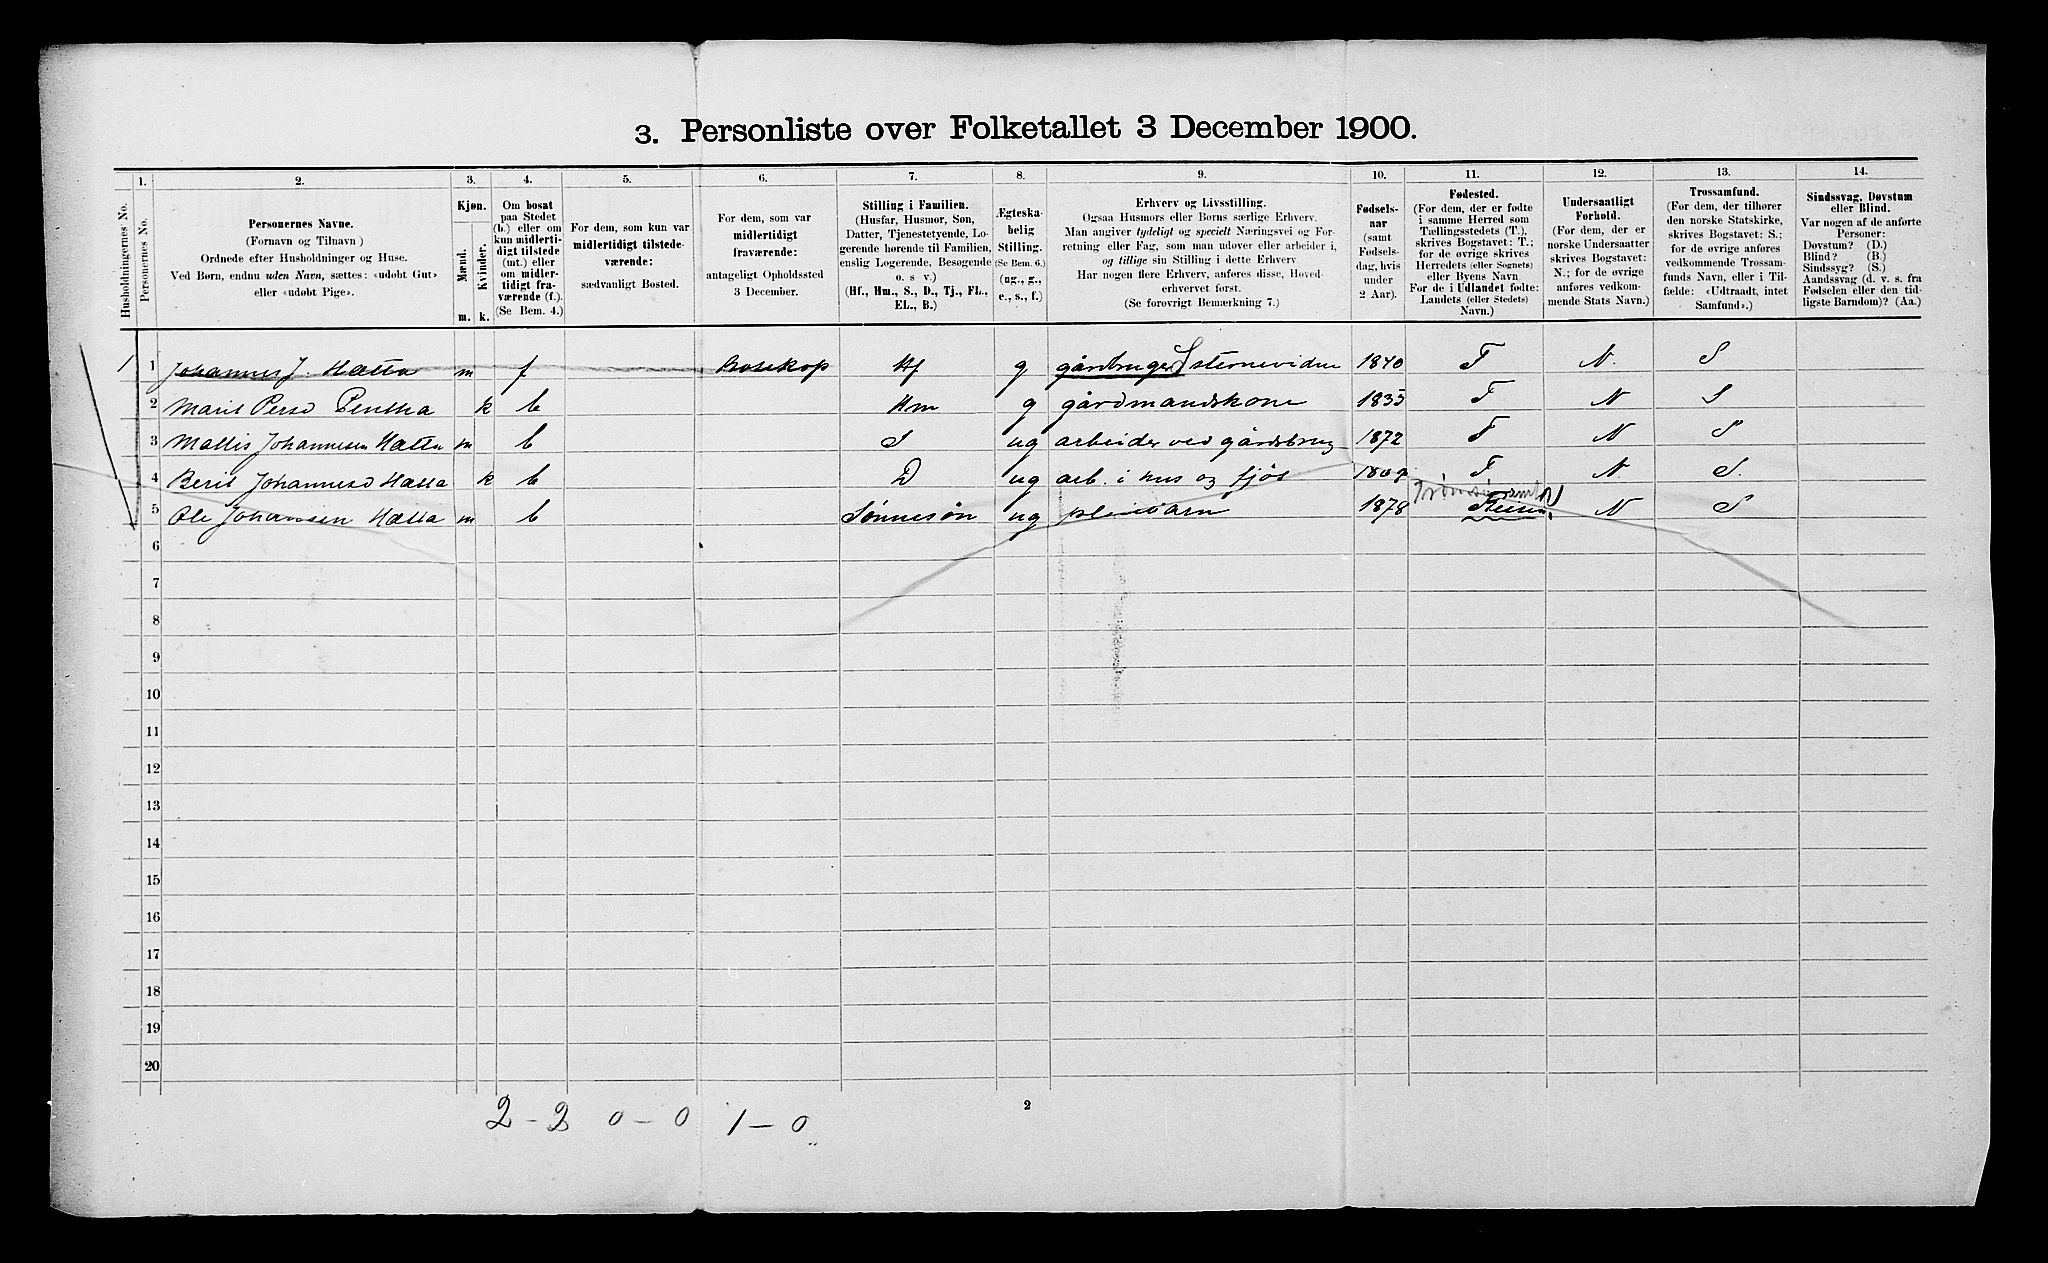 3. Personliste over Folketallet 3 December 1900.
Husholdningernes No.
1.
Personernes No.
2.
Personernes Navne.
(Fornavn og Tilnavn)
Ordnede efter Husholdninger og Huse.
Ved Børn, endnu uden Navn, sættes: «udøbt Gut»
eller «udøbt Pige».
3.
Kjøn.
Mænd.
Kvinder.
m. k.
4.
Om bosat
paa Stedet
(b.) eller om
kun midlerti-
digt tilstede
(mt.) eller
om midler-
tidigt fra-
værende (f.).
(Se Bem. 4.)
5.
For dem, som kun var
midlertidigt tilstede-
værende:
sædvanligt Bosted.
6.
For dem, som var
midlertidigt
fraværende:
antageligt Opholdssted
3 December.
7.
Stilling i Familien.
(Husfar, Husmor, Søn,
Datter, Tjenestetyende, Lo-
gerende hørende til Familien,
enslig Logerende, Besøgende
o. s v.)
(Hf., Hm., S., D., Tj., FL.,
EL., B.)
8.
Ægteska-
belig
Stilling.
(Se Bem. 6.)
(ug., g.,
e., s., f.)
9.
Erhverv og Livsstilling.
Ogsaa Husmors eller Børns særlige Erhverv.
Man angiver tydeligt og specielt Næringsvei og For-
retning eller Fag, som man udøver eller arbeider i,
og tillige sin Stilling i dette Erhverv
Har nogen flere Erhverv, anføres disse, Hoved-
erhvervet først.
(Se forøvrigt Bemærkning 7.)
10.
Fødsels-
aar
(samt
Fødsels-
dag, hvis
under
2 Aar).
11.
Fødested.
(For dem, der er fødte
i samme Herred som
Tællingsstedets (T.),
skrives Bogstavet: T.;
for de øvrige skrives
Herredets (eller Sognets)
eller Byens Navn.
For de i Udlandet fødte:
Landets (eller Stedets)
Navn.)
12.
Undersaatligt
Forhold.
(For dem, der er
norske Undersaatter
skrives Bogstavet:
N.; for de øvrige
anføres vedkom-
mende Stats Navn.)
13.
Trossamfund.
(For dem, der tilhører
den norske Statskirke,
skrives Bogstavet: S.;
for de øvrige anføres
vedkommende Trossam-
funds Navn, eller i Til-
fælde: «Udtraadt, intet
Samfund».)
14.
Sindssvag, Døvstum
eller Blind.
Var nogen af de anførte
Personer:
Døvstum? (D.)
Blind? (B.)
Sindssyg? (S.)
Aandssvag (d. v. s. fra
Fødselen eller den tid-
ligste Barndom)? (Aa.)
1 1 Johannes J. Hætta m f Bosekop Hf g gårdbruger S 1840 T N. S
2 Marit Persd Pentha k b Hm g gårdmandskone 1835 T N S
3 Mattis Johannesen Hætta m b S ug arbeider ved gårdsbrug 1872 T N S
4 Berit Johannesd Hætta k b D ug arb. i hus og fjøs T N. S.
Tromsø amt
5 Ole Johansen Hætta m b Sønnesøn ug pleiebarn 1878 N S
6
7
8
9
10
11
12
13
14
15
16
17
18
19
20
2 - 2 0 - 0 1 - 0
2